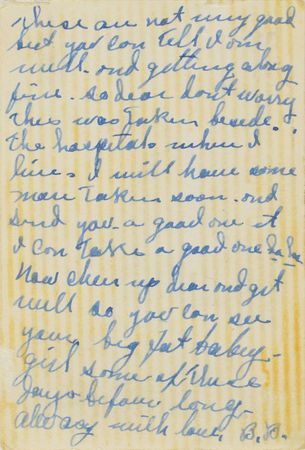 These are not very good
but you can tell I am
well. and getting along
fine. so dear don't worry
This was taken beside
the hospitals where I
live. I will have some
more taken soon. and
send you a good one if
I can take a good one ha ha
Now cheer up dear and get
well so you can see
your big fat baby
girl some of these
days before long.
Always with love, B.B.